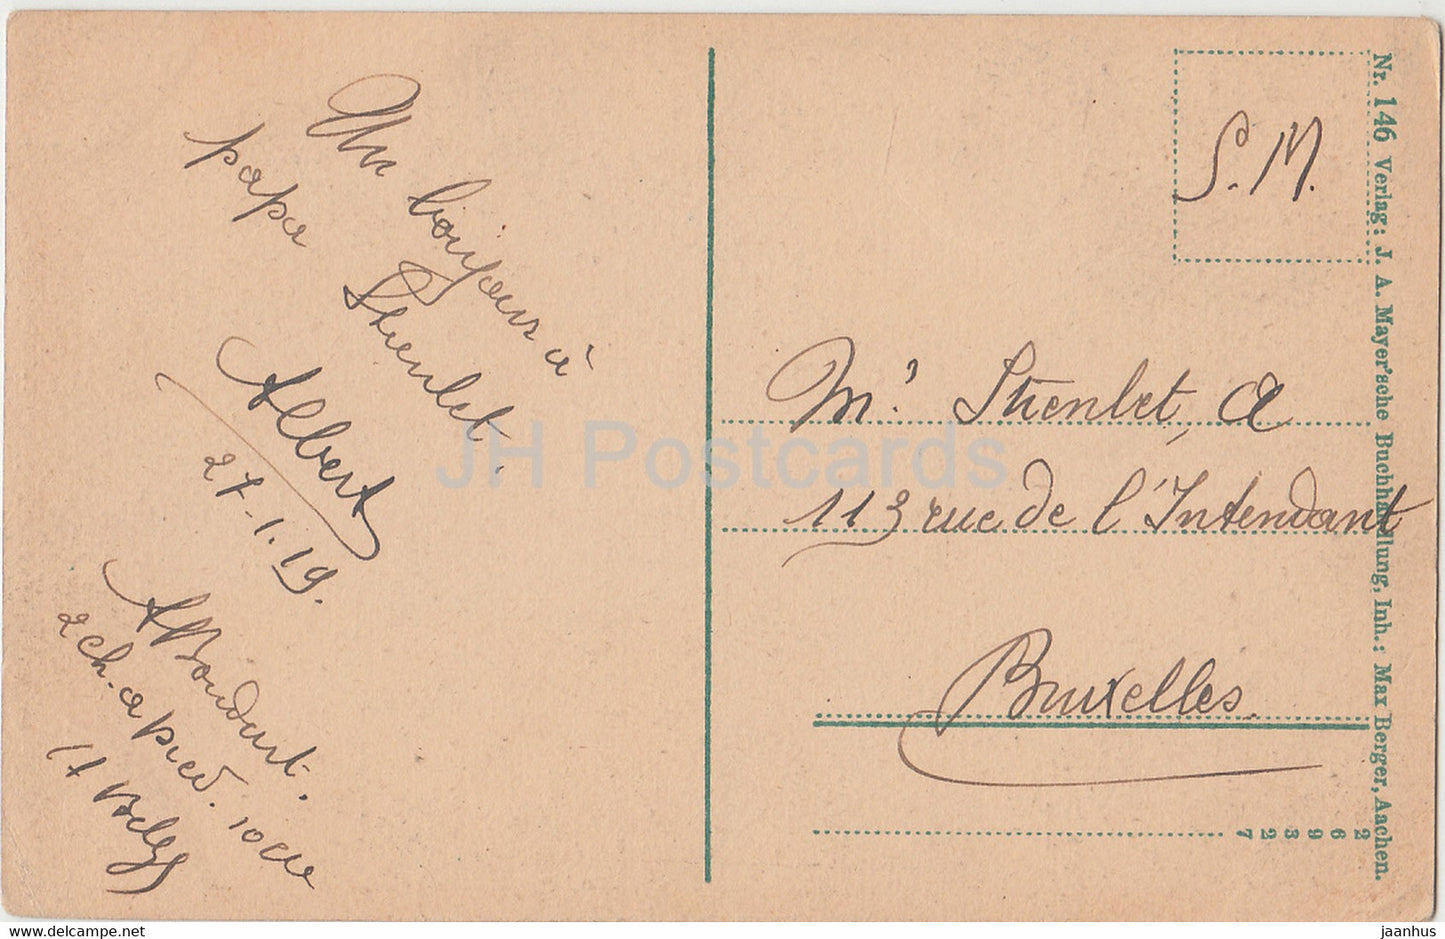 Un bonjour à
papa Stienlet.
Albert
27-1.19.
A Bondart.
2 ch. a pied. 10 cie
S.M.
Mr. Stienlet, A
113 rue de l'Intendant
Bruxelles.
Nr. 146 Verlag: J. A. Mayer'sche Buchhandlung, Inh.: Max Berger, Aachen.
JH Postcards
www.delcampe.net
jaanhus